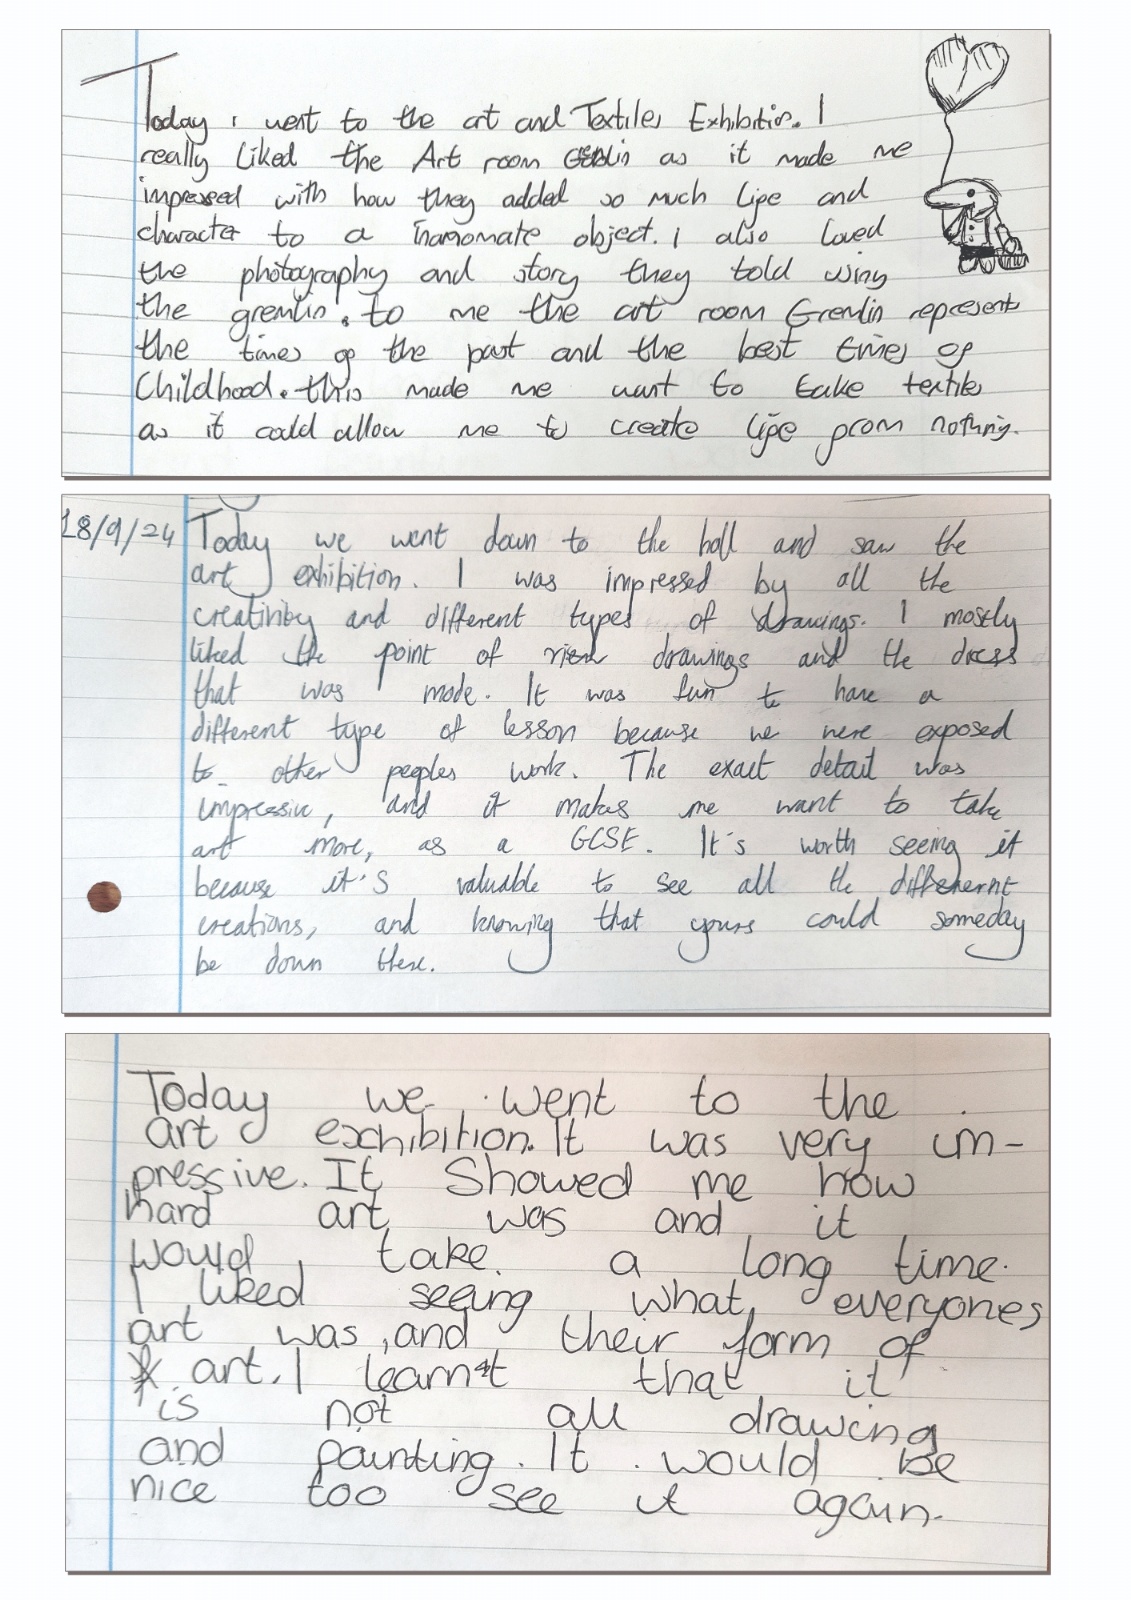 Today i went to the art and Textiles Exhibition. I
really liked the Art room as it made me
impressed with how they added so much life and
character to a inanomate object. i also loved
the photography and story they told using
the gremlin. to me the art room Gremlin represents
the times of the past and the best times of
Childhood. this made me want to take textiles
as it could allow me to create life from nothing.
18/9/24 Today we went down to the hall and saw the
art exhibition. I was impressed by all the
creativity and different types of drawings. I mostly
liked the point of view drawings and the dress
that was made. It was fun to have a
different type of lesson because we were exposed
to other peoples work. The exact detail was
impressive, and it makes me want to take
art more, as a GCSE. It's worth seeing it
because it's valuable to see all the
creations, and knowing that yours could someday
be down there.
Today we went to the
art exhibition. It was very im-
pressive. It Showed me how
hard art was and it
would take a long time.
I liked seeing what everyones
art was, and their form of
art. I learnt that it
is not all drawing
and painting. It would be
nice too see it again.